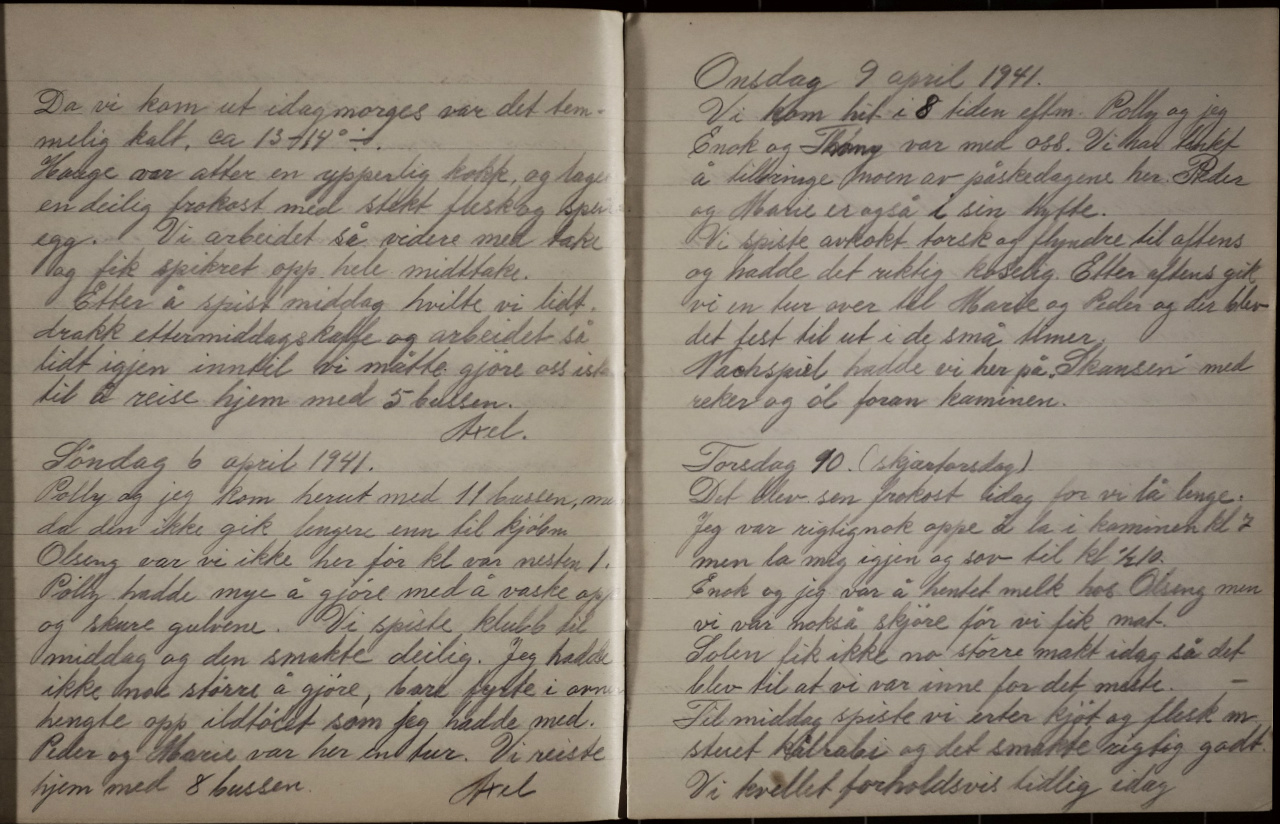 Da vi kom ut idagmorges var det tem-
melig kalt, ca 13 á 14° ÷.
Hauge var atter en ypperlig kokk, og laget
en deilig frokost med stekt flesk og
egg. Vi arbeidet så videre med take
og fik spikret opp hele midttake.
Etter å spist middag hvilte vi lidt.
drakk ettermiddagskaffe og arbeidet så
lidt igjen inntil vi måtte gjöre oss
til å reise hjem med 5 bussen.
Axel.
Söndag 6 april 1941.
Polly og jeg kom herut med 11 bussen, men
da den ikke gik lengere enn til kjöbm.
Olseng var vi ikke her för kl var nesten 1.
Polly hadde mye å gjöre med å vaske opp
og skure gulvene. Vi spiste klubb til
middag og den smakte deilig. Jeg hadde
ikke noe större å gjöre, bare fyrte i
hengte opp ildtöiet som jeg hadde med.
Peder og Marie var her en tur. Vi reiste
hjem med 8 bussen.
Axel
Onsdag 9 april 1941.
Vi kom hit i 8 tiden eftm. Polly og jeg
Enok og var med oss. Vi har tenkt
å tilbringe noen av påskedagene her. Peder
og Marie er også i sin hytte.
Vi spiste avkokt torsk og flyndre til aftens
og hadde det riktig koselig. Etter aftens gik
vi en tur over til Marie og Peder og der blev
det fest til ut i de små timer.
Nachspiel hadde vi her på „Skansen" med
reker og öl foran kaminen.
Torsdag 10. (skjærtorsdag)
Det blev sen frokost idag for vi lå lenge.
Jeg var rigtignok oppe å la i kaminen kl 7
men la meg igjen og sov til kl 1/2 10.
Enok og jeg var å hentet melk hos Olseng men
vi var nokså skjöre för vi fik mat.
Solen fik ikke no större makt idag så det
blev til at vi var inne for det meste. –
Til middag spiste vi erter kjöt og flesk m
stuet kålrabi og det smakte rigtig godt.
Vi kvellet forholdsvis tidlig idag